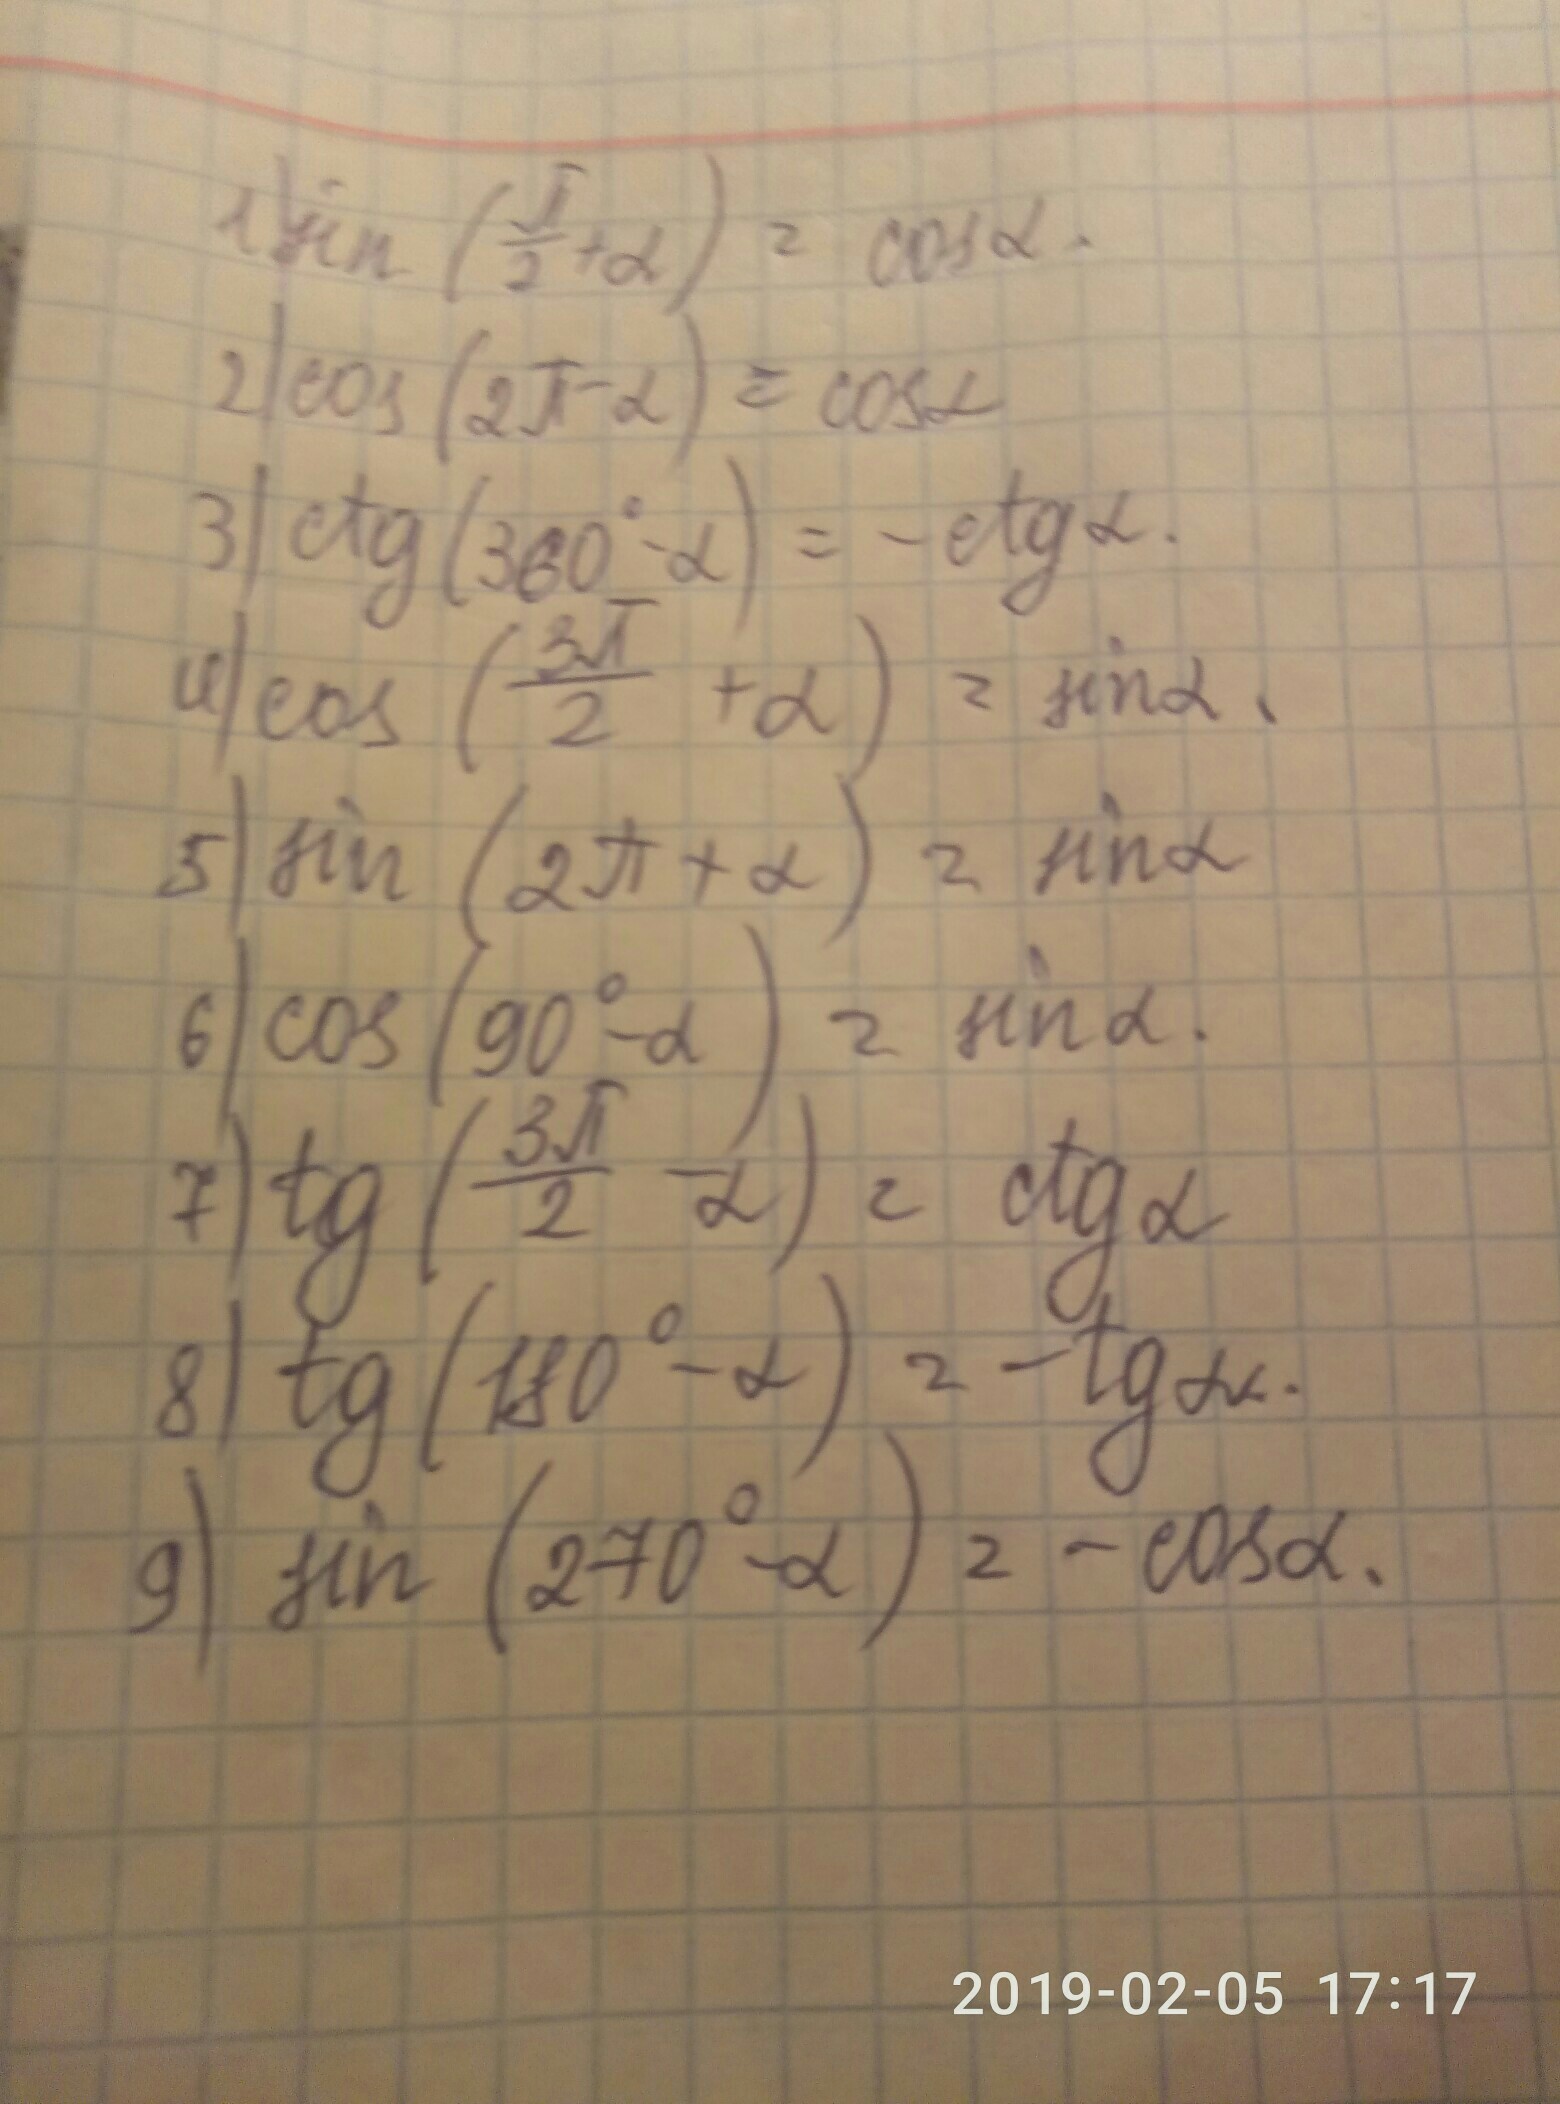 1) sin (π/2 + α) = cos α.
2) cos (2π - α) = cos α
3) ctg (360° - α) = - ctg α.
4) cos (3π/2 + α) = sin α.
5) sin (2π + α) = sin α
6) cos (90° - α) = sin α.
7) tg (3π/2 - α) = ctg α
8) tg (180° - α) = - tg α.
9) sin (270° - α) = - cos α.
2019-02-05 17:17